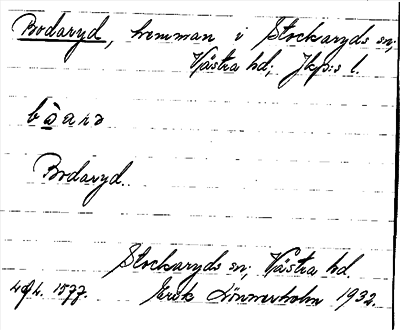 Bodaryd, hemman i Stockaryds sn;
Västra hd; Jkps l.
Bodaryd.
Stockaryds sn; Västra hd
Erik Lönnerholm 1932.